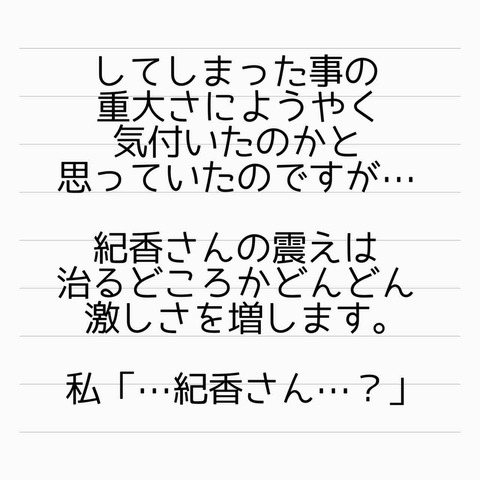 してしまった事の
重大さにようやく
気付いたのかと
思っていたのですが…
紀香さんの震えは
治るどころかどんどん
激しさを増します。
私「…紀香さん…？」